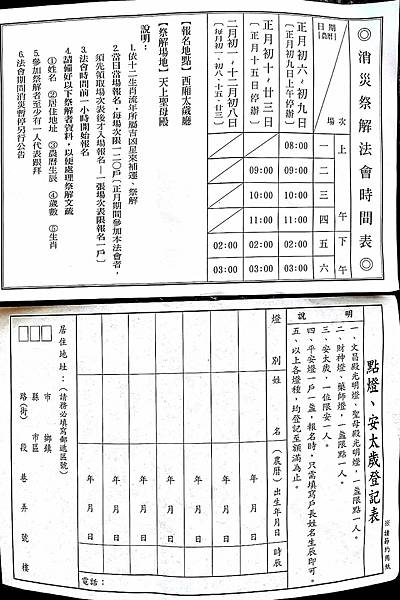 ◎消災祭解法會時間表◎
日期(農曆) 場次 上午 一 二 三 四 下午 五 六
正月初六、初九日
〔正月初九日上午停辦〕
08:00 09:00 10:00 11:00 02:00 03:00
正月初十、廿三日
〔正月十五日停辦〕
09:00 10:00 11:00 02:00 03:00
二月初一、十二月初八日
〔每月初一、初八、十五、廿三〕
02:00 03:00
【報名地點】西廂太歲廳
【祭解場地】天上聖母殿
說明：
1.依十二生肖流年所屬吉凶星來補運、祭解
2.當日當場報名，每場次限一二○戶〔正月期間參加本法會者，
須先領取場次表後才入場報名－一張場次表限報名一戶〕
3.法會時間前一小時開始報名
4.請備好以下祭解者資料，以便處理祭解文疏
①姓名 ②居住地址 ③農曆生辰 ④歲數 ⑤生肖
5.參加祭解者至少有一人代表跟拜
6.法會期間消災暫停另行公告
點燈、安太歲登記表
※請節約用紙
說明
一、文昌殿光明燈、聖母殿光明燈，一盞限點一人。
二、財神燈、藥師燈，一盞限點一人。
三、安太歲，一位限安一人。
四、平安燈一戶一盞，報名時，只需填寫戶長姓名生辰即可。
五、以上各燈種，均登記至額滿為止。
燈別 姓名 (農曆)出生年月日 時辰
年 月 日
年 月 日
年 月 日
年 月 日
年 月 日
年 月 日
居住地址：(請務必填寫郵遞區號)
□□□
市 鄉鎮
縣 市區
路(街) 段 巷 弄 號 樓
電話：